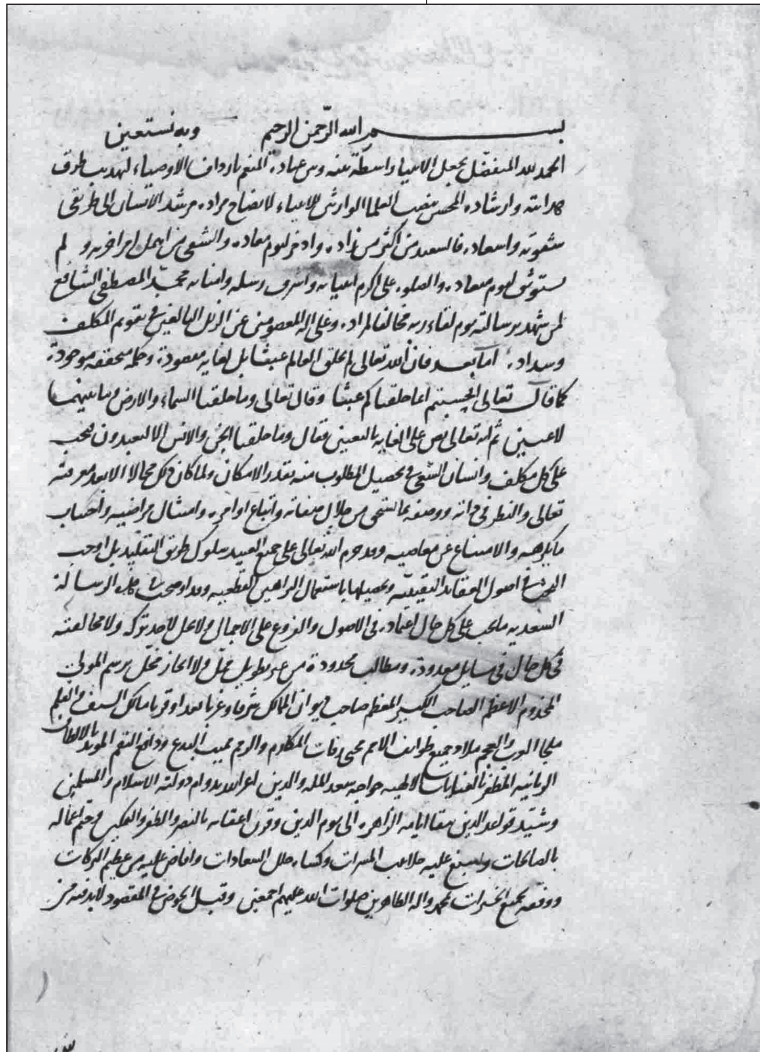 بسم الله الرحمن الرحيم وبه نستعين
الحمد لله المتفضل بجعل الانبياء واسطة بينه وبين عباده المنعم بارداف الاوصياء لتهذيب طرق
هدايته وارشاده المحسن بنصب العلماء الوارثين للانبياء لايضاح مراده مرشد الانسان الى طريقي
شقوته واسعاده فالسعيد من اكثر من زاده وادخر ليوم معاده والشقي من اهمل امر اخرته ولم
يستوثق ليوم معاده والصلوه على اكرم انبيائه واشرف رسله وامنائه محمد المصطفى الشافع
لمن شهد برسالته يوم لقاء ربه مخالفا لمراده وعلى اله المعصومين عن الزلل البالغين في تقويم المكلف
وسداده اما بعد فان الله تعالى لم يخلق العالم عبثا بل لغايه مقصودة وحكمه محققه موجودة
كما قال تعالى افحسبتم انما خلقناكم عبثا وقال تعالى وما خلقنا السماء والارض وما بينهما
لاعبين ثم انه تعالى نص على الغايه بالتعيين فقال وما خلقت الجن والانس الا ليعبدون فيجب
على كل مكلف وانسان السعي في تحصيل المطلوب منه بقدر الامكان ولما كان ذلك محالا الا بعد معرفته
تعالى والنظر في ذاته ووصفه بما يستحق من جلال صفاته واتباع اوامره وامتثال مراضيه واجتناب
ما يكرهه والامتناع عن معاصيه وقد حرم الله تعالى على جميع العبيد سلوك طريق التقليد بل اوجب
البحث في اصول العقائد اليقينيه وتحصيلها باستعمال البراهين القطعيه وقد اوضحت في هذه الرسالة
السعديه ما يجب على كل حال اعتماده في الاصول والفروع على الاجمال ولا يحل لاحد تركه ولا مخالفته
في كل حال في مسايل معدودة ومطالب محدودة من غير تطويل ممل ولا ايجاز مخل برسم المولى
المخدوم الاعظم الصاحب الكبير المعظم صاحب ديوان الممالك شرقا وغربا بعدا وقربا مالك السيف والقلم
ملجا العرب والعجم ملاذ جميع طوايف الامم محيي رفات المكارم والرمم مميت البدع ودافع النقم المويد بالالطاف
الربانيه المظفر بالعنايات الالهيه خواجه سعد الملة والدين اعز الله بدوام دولته الاسلام والمسلمين
وشيد قواعد الدين ببقاء ايامه الزاهره الى يوم الدين وقرن اعقابه بالنصر والظفر والتمكين وختم اعماله
بالصالحات واسبغ عليه جلابيب المسرات وكساه حلل السعادات وافاض عليه من عظيم البركات
ووفقه لجميع الخيرات بمحمد واله الطاهرين صلوات الله عليهم اجمعين وقبل الخوض في المقصود لا بد من